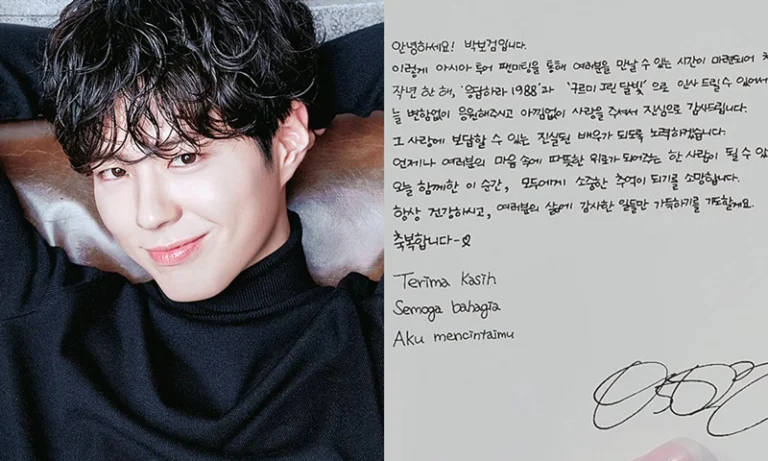 안녕하세요! 박보검입니다.
이렇게 아시아 투어 팬미팅을 통해 여러분을 만날 수 있는 시간이 마련되어
작년 한 해, '응답하라 1988'과 '구르미 그린 달빛'으로 인사 드릴 수 있어서
늘 변함없이 응원해주시고 아낌없이 사랑을 주셔서 진심으로 감사드립니다.
그 사랑에 보답할 수 있는 진실된 배우가 되도록 노력하겠습니다.
언제나 여러분의 마음 속에 따뜻한 위로가 되어주는 한 사람이 될 수 있
오늘 함께한 이 순간, 모두에게 소중한 추억이 되기를 소망합니다.
항상 건강하시고, 여러분의 삶에 감사한 일들만 가득하기를 기도할게요.
축복합니다-
Terima kasih
Semoga bahagia
Aku mencintaimu